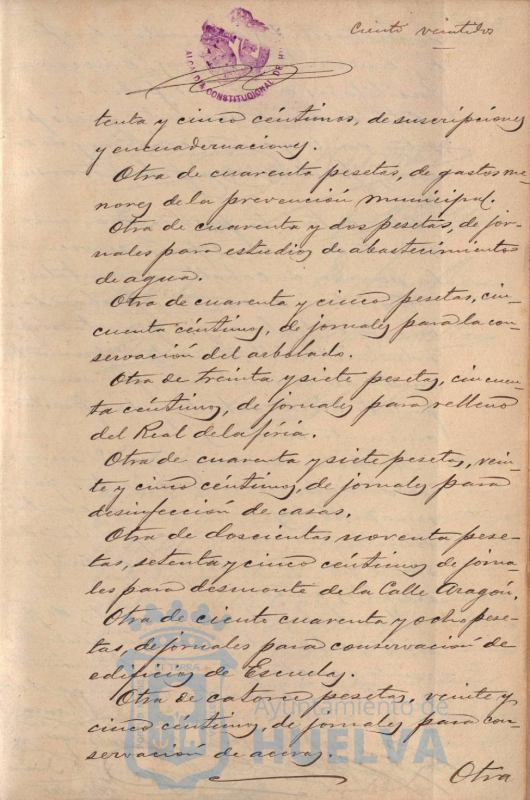 Ciento veintidos
ALCALDIA CONSTITUCIONAL DE
tenta y cinco céntimos, de suscripciones
y encuadernaciones.
Otra de cuarenta pesetas, de gastos me
nores de la prevención municipal.
Otra de cuarenta y dos pesetas, de jor-
nales para estudios de abastecimientos
de agua.
Otra de cuarenta y cinco pesetas, cin-
cuenta céntimos, de jornales para la con-
servación del arbolado.
Otra de treinta y siete pesetas, cincuen
ta céntimos, de jornales para relleno
del Real de la féria.
Otra de cuarenta y siete pesetas, vein-
te y cinco céntimos, de jornales para
desinfección de casas.
Otra de doscientas noventa pese-
tas, setenta y cinco céntimos de jorna-
les para desmonte de la Calle Aragón.
Otra de ciento cuarenta y ocho pese-
tas, de jornales para conservación de
edificios de Escuelas.
Otra de catorce pesetas, veinte y
cinco céntimos, de jornales para con-
servación de aceras.
Otra
Ayuntamiento de
HUELVA